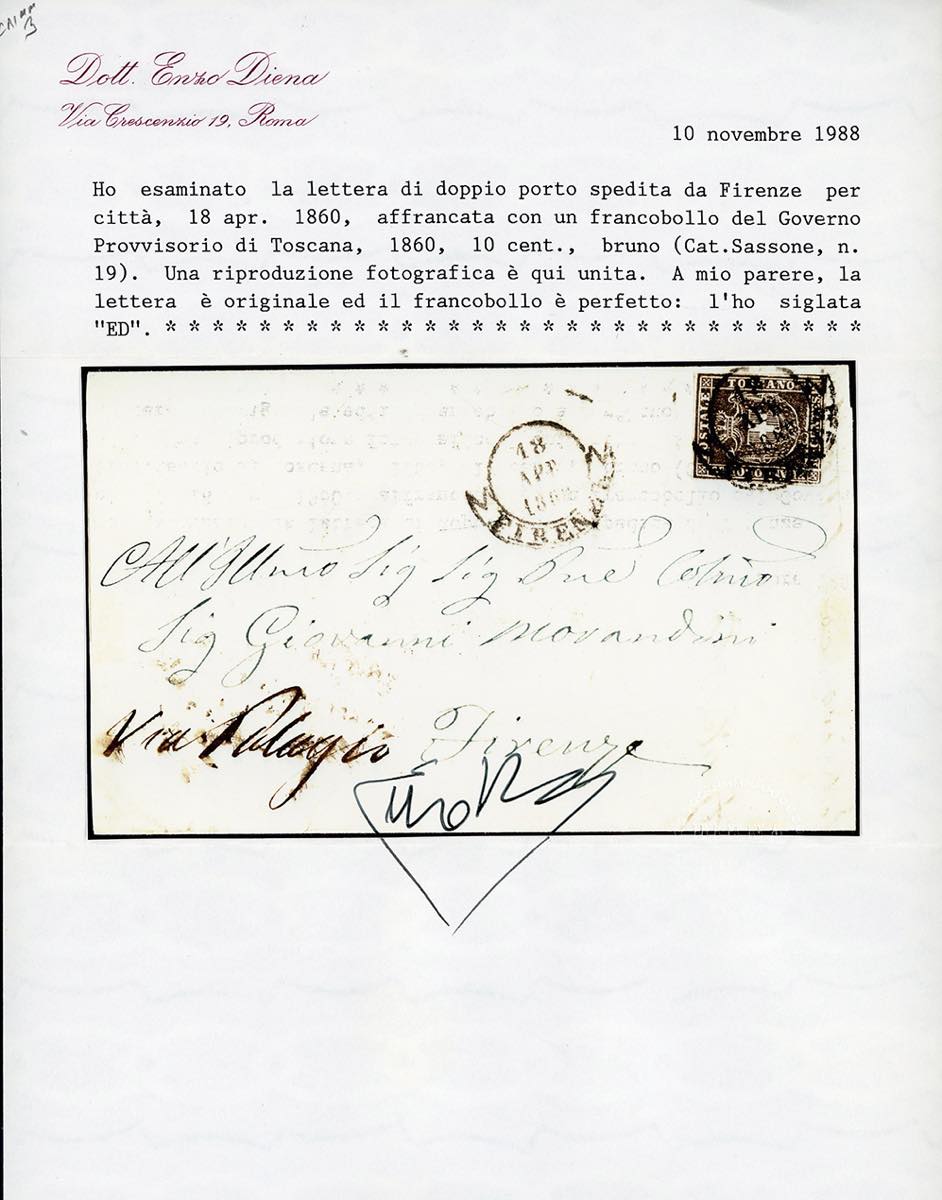 Dott. Enzo Diena
Via Crescenzio 19, Roma
10 novembre 1988
Ho esaminato la lettera di doppio porto spedita da Firenze per
città, 18 apr. 1860, affrancata con un francobollo del Governo
Provvisorio di Toscana, 1860, 10 cent., bruno (Cat.Sassone, n.
19). Una riproduzione fotografica è qui unita. A mio parere, la
lettera è originale ed il francobollo è perfetto: l'ho siglata
"ED". * * * * * * * * * * * * * * * * * * * * * * * * * * * * * *
TOSCANO
POSTALE
18
APR
1860
FIRENZE
All'Illmo Sig Sig Pne Colmo
Sig Giovanni Morandini
Via Palagio Firenze